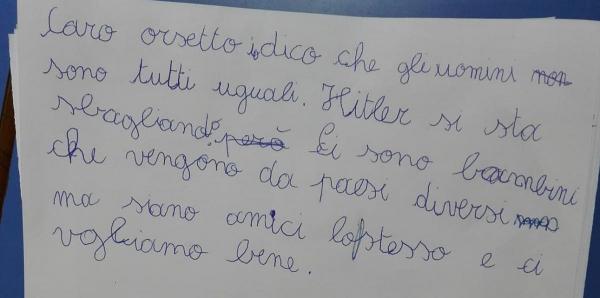 Caro orsetto io dico che gli uomini non
sono tutti uguali. Hitler si sta
sbagliando. però Ci sono bambini
che vengono da paesi diversi
ma siano amici lostesso e ci
vogliamo bene.